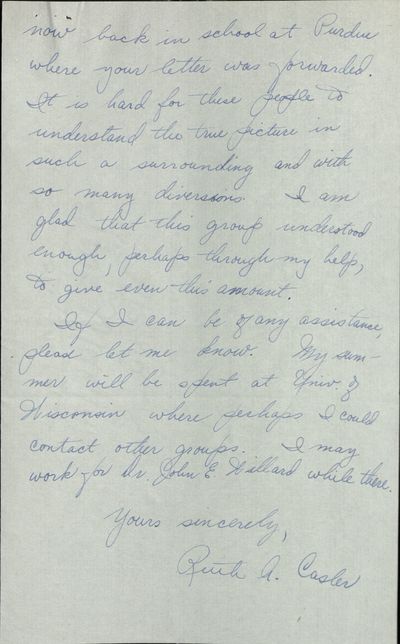 now back in school at Purdue
where your letter was forwarded.
It is hard for these people to
understand the true picture in
such a surrounding and with
so many diversions. I am
glad that this group understood
enough, perhaps through my help,
to give even this amount.
If I can be of any assistance,
plead let me know. My sum-
mer will be spent at Univ. of
Wisconsin where perhaps I could
contact other groups. I may
work for Dr. John E. Willard while there.
Yours sincerely,
Ruth A. Casler